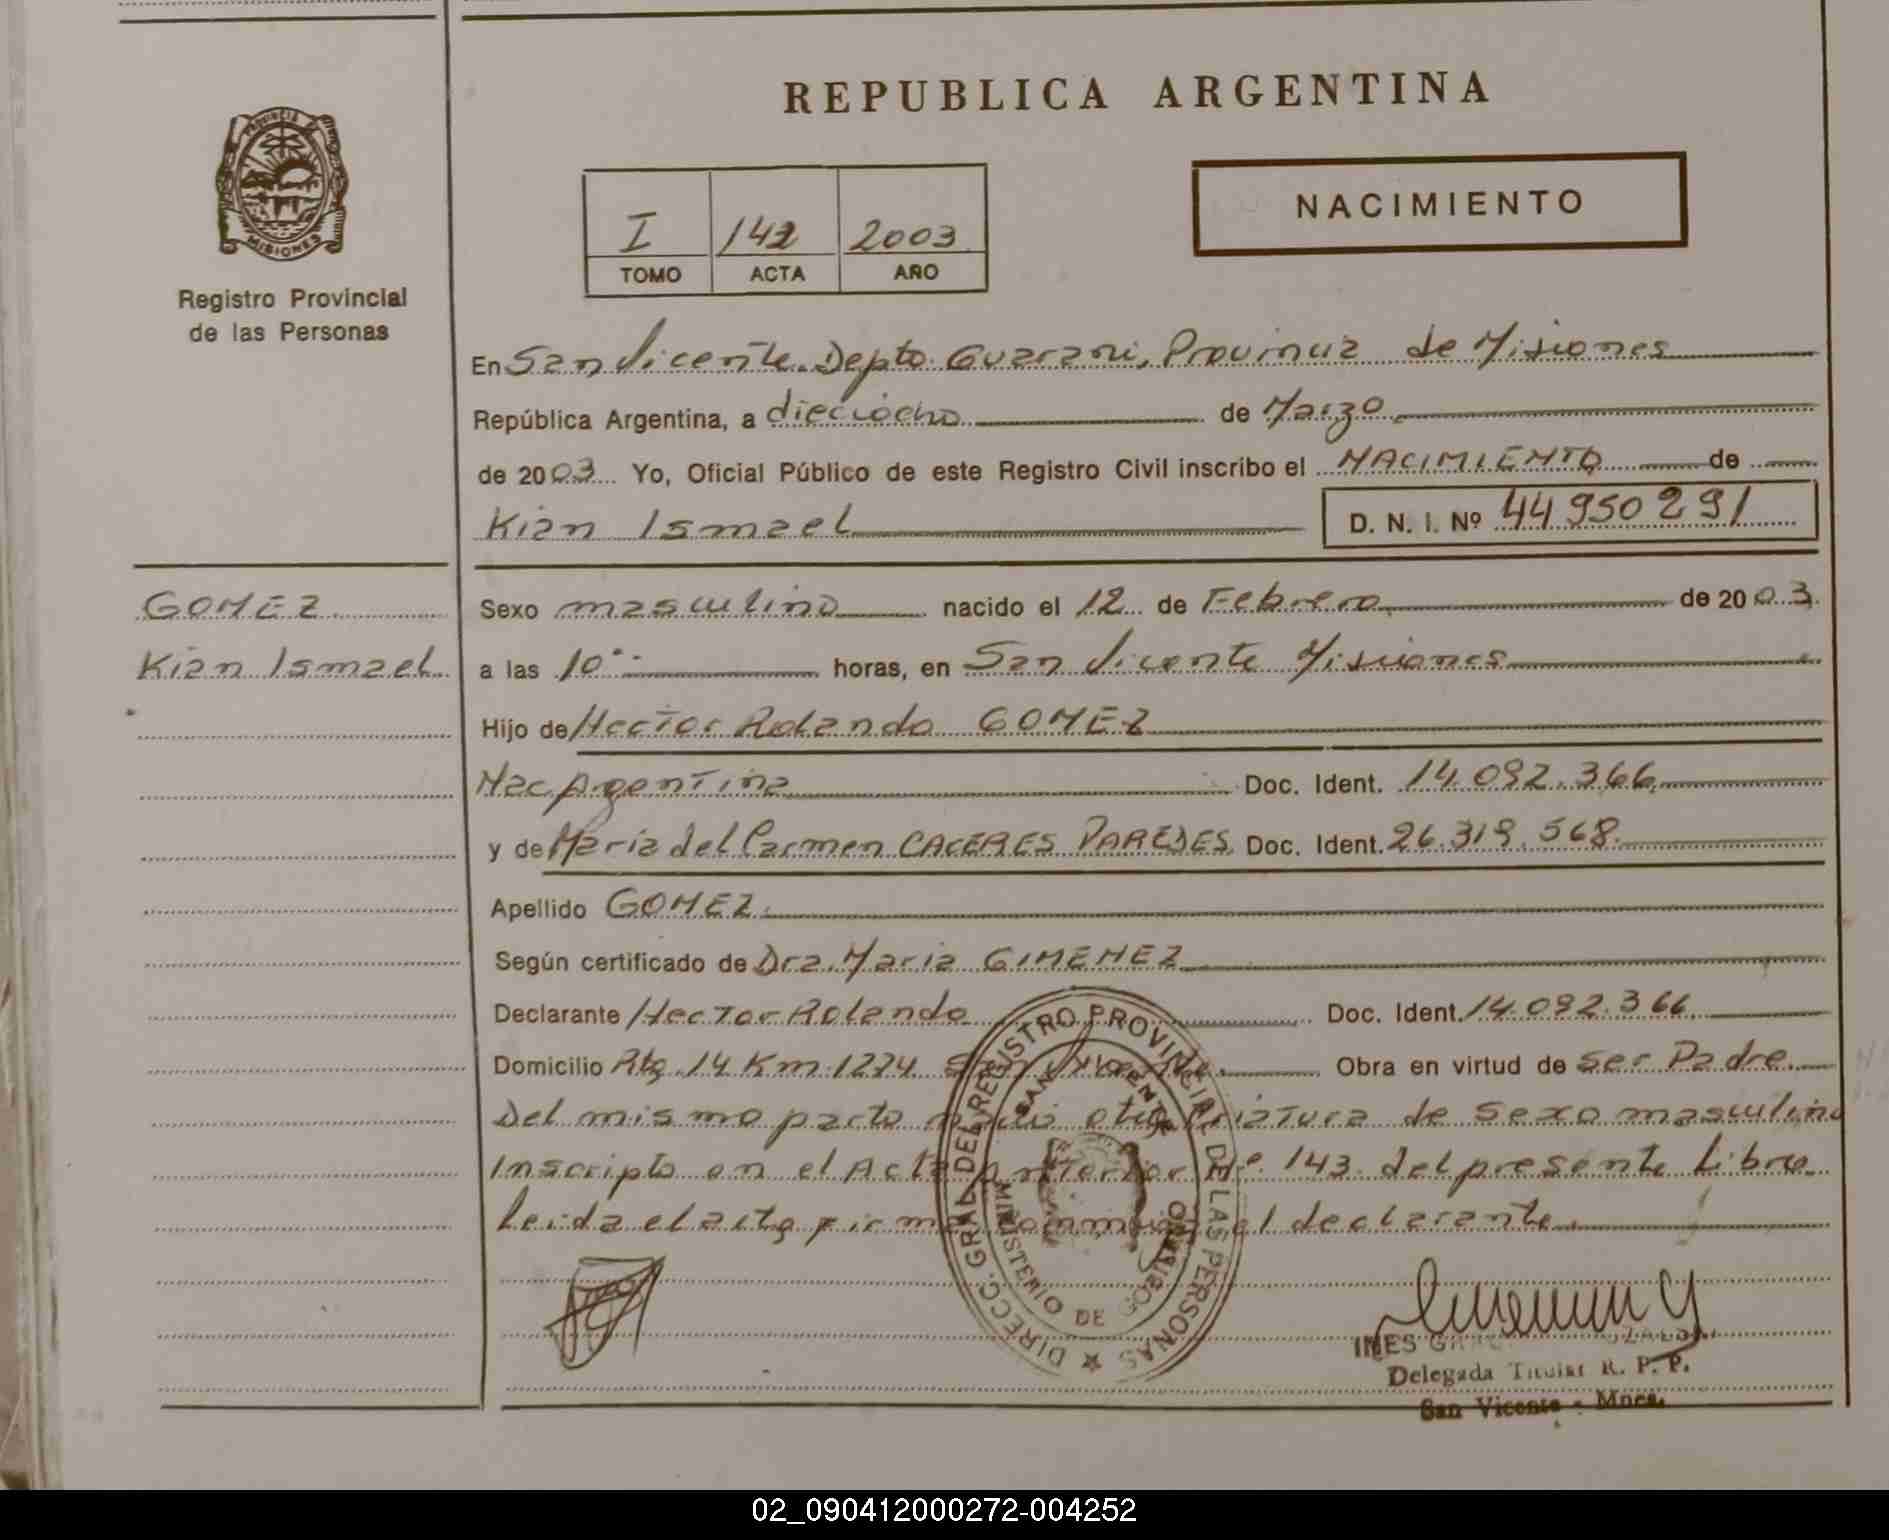 REPUBLICA ARGENTINA
PROVINCIA DE
MISIONES
Registro Provincial
de las Personas
NACIMIENTO
I 142 2003
TOMO ACTA AÑO
En San Vicente. Depto Guarani, Provincia de Misiones
República Argentina, a dieciocho de Marzo
de 2003 Yo, Oficial Público de este Registro Civil inscribo el NACIMIENTO de
Kian Ismael D. N. I. Nº 44950291
GOMEZ
Kian Ismael
Sexo masculino nacido el 12 de Febrero de 2003
a las 10 horas, en San Vicente Misiones
Hijo de Hector Rolando GOMEZ
Nac. Argentina Doc. Ident. 14.092.366
y de Maria del Carmen CACERES PAREDES Doc. Ident. 26.319.568
Apellido GOMEZ
Según certificado de Dra. Maria GIMENEZ
Declarante Hector Rolando Doc. Ident. 14.092.366
Domicilio Rta. 14 Km. 1274 San Vicente. Obra en virtud de ser Padre.
Del mismo parto nacio otra criatura de sexo masculino
Inscripto en el Acta anterior Nº 143 del presente Libro
Leida el acta firma conmigo el declarante.
DIRECC. GRAL. DEL REGISTRO PROVINCIAL DE LAS PERSONAS
SAN VICENTE
MINISTERIO DE GOBIERNO
INES
Delegada Titular R. P. P.
San Vicente - Mnes.
02_090412000272-004252